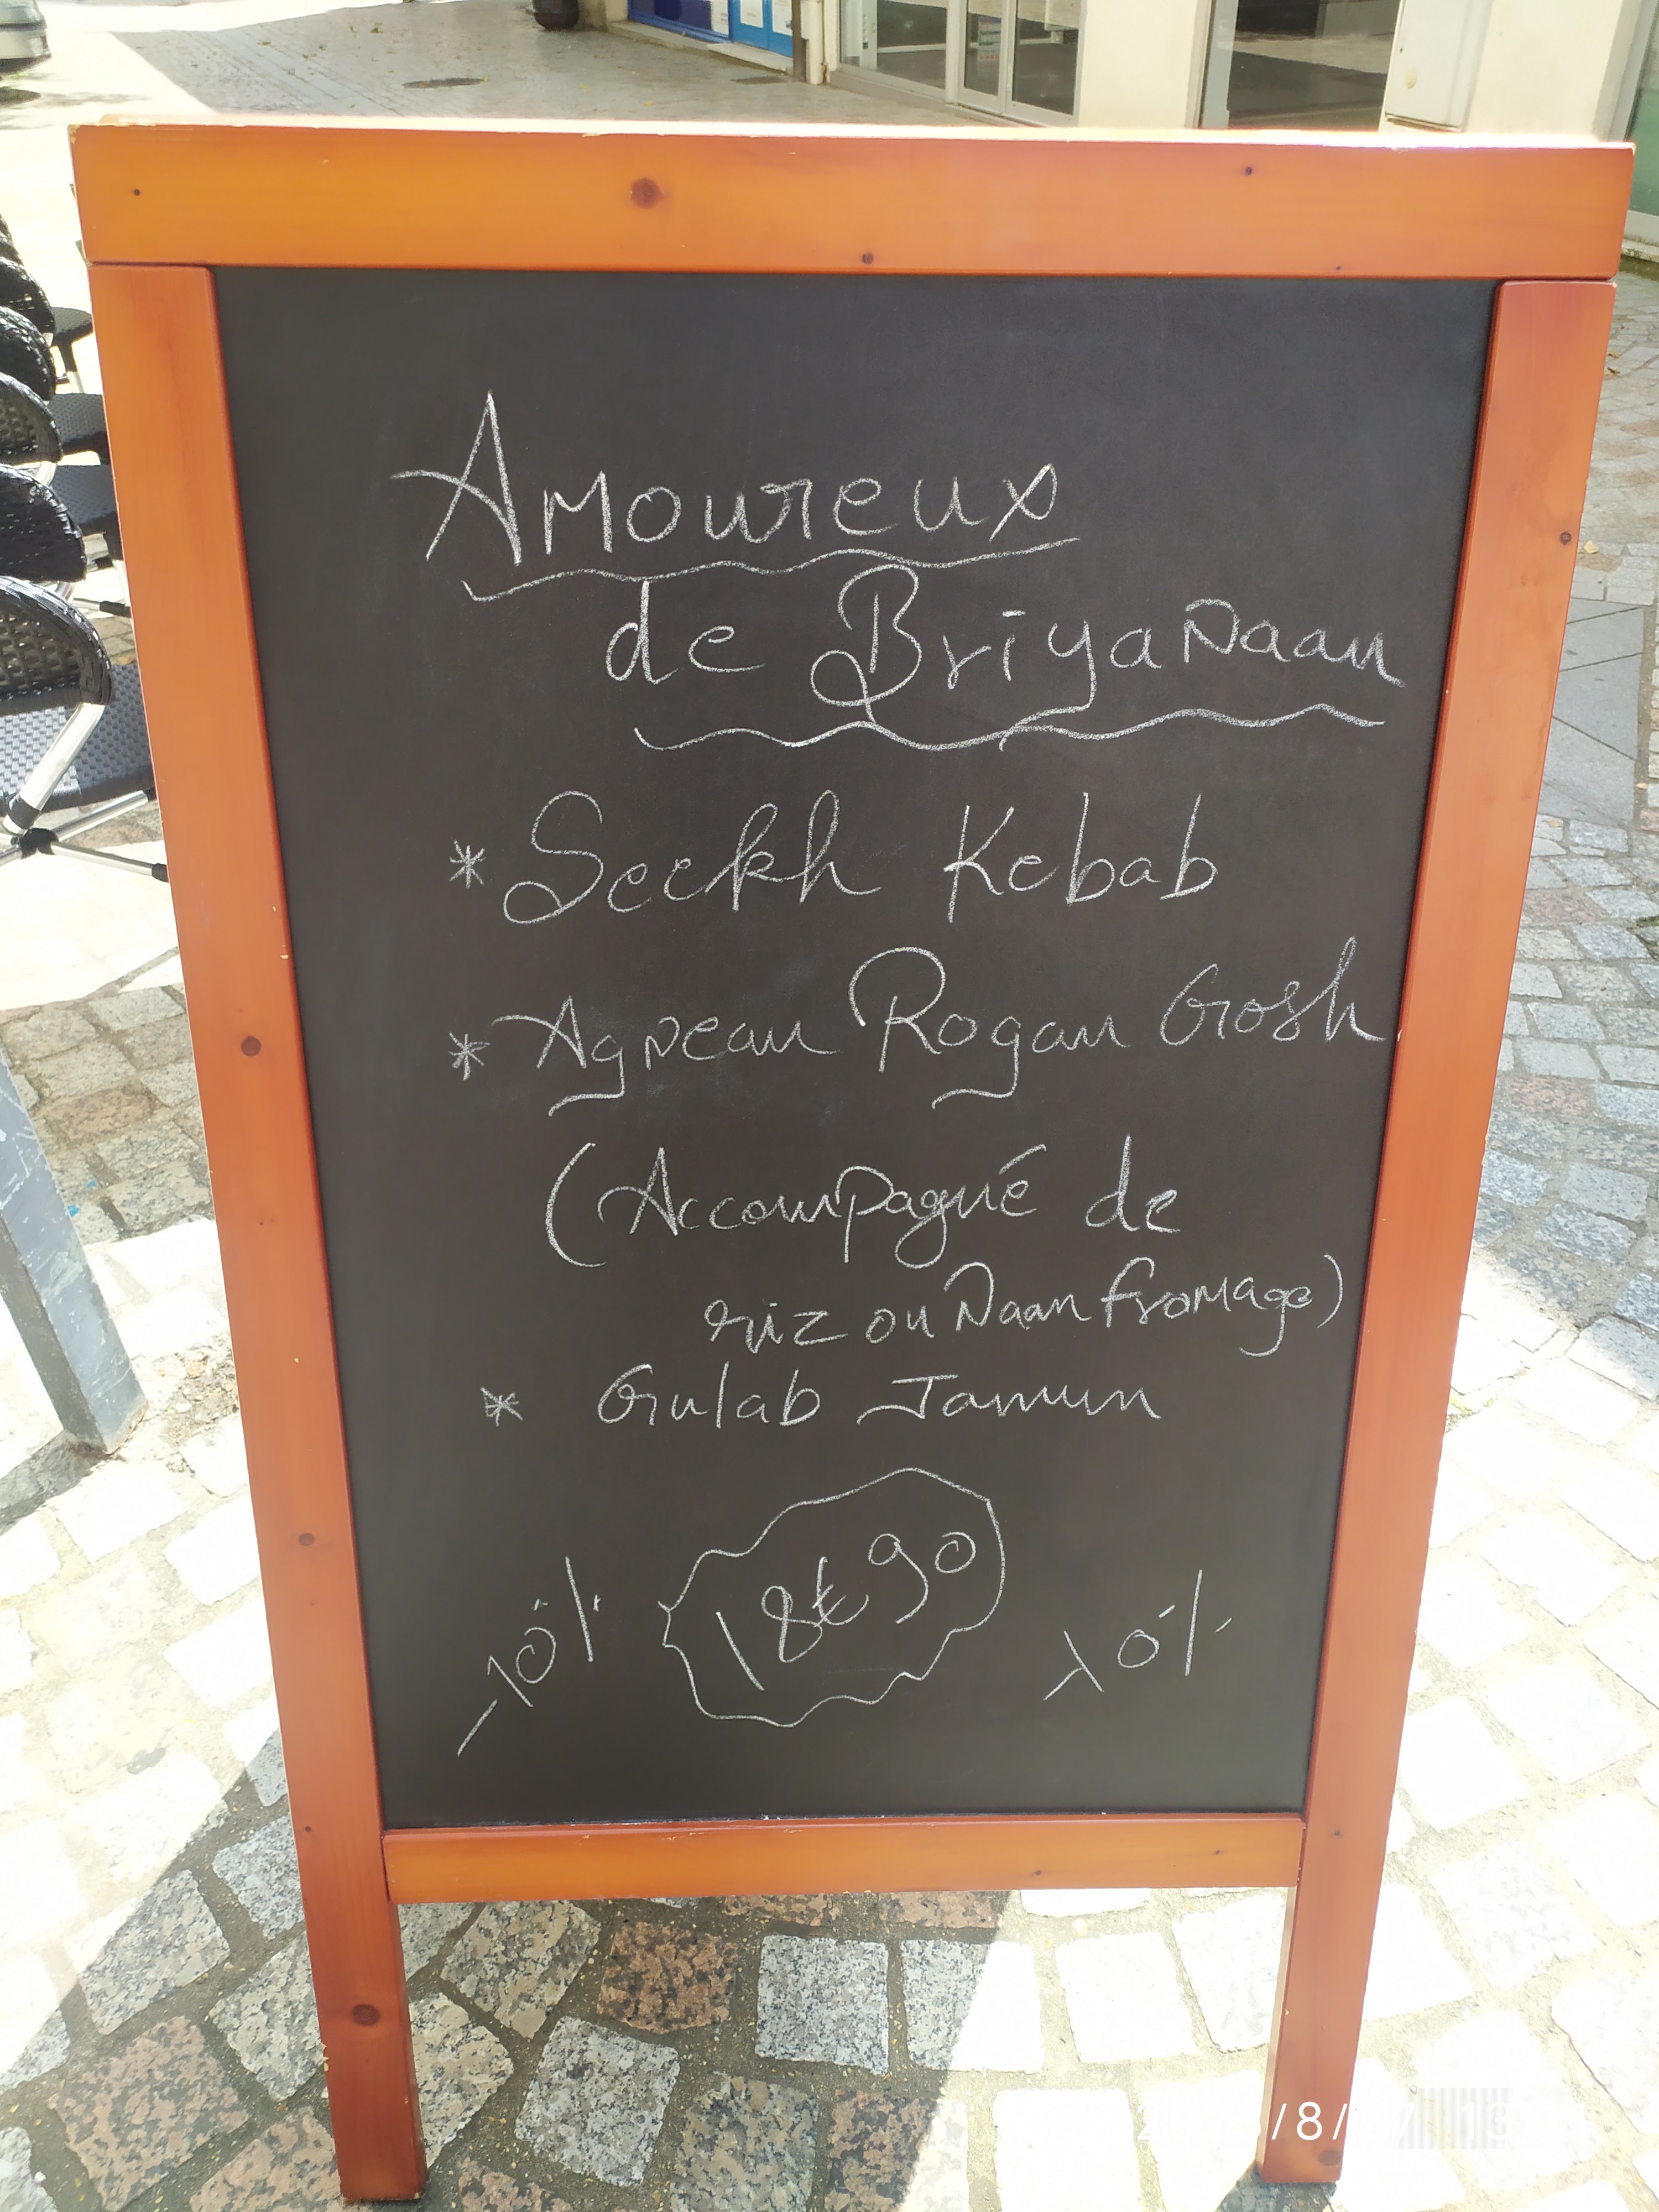 Amoureux
de BriyaNaan
* Seekh Kebab
* Agneau Rogan Gosh
(Accompagné de
riz ou Naan fromage)
* Gulab Jamun
18€90
-10%
10%